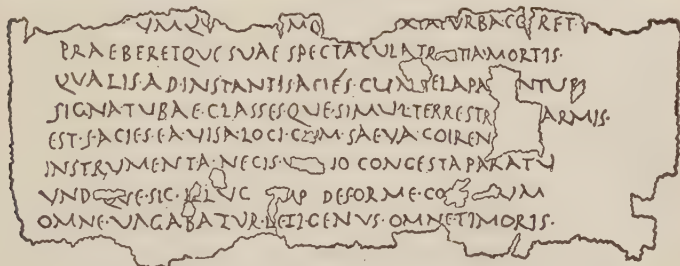 PRAEBERETQVE SVAE SPECTACVLA MORTIS·
QVALIS·AD INSTANTIS ACIÉS·CVM TELA PA NTVR
SIGNA·TVBAE·CLASSESQVE·SIMVL·TERRESTR ARMIS·
EST· EA VISA·LOCI·CVM·SAEVA·COIREN
INSTRVMENTA·NECIS·V IO CONGESTA PARATV
SIC· DEFORME·CO VM
OMNE·VAGABATVR·LETI·GENVS·OMNE TIMORIS·